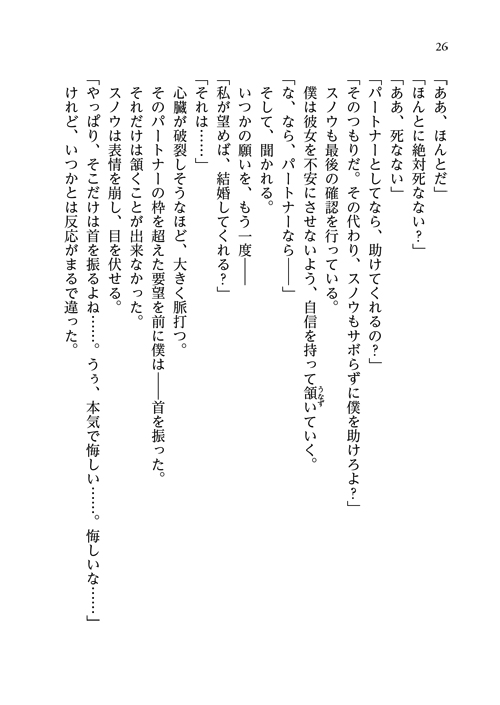 26
「ああ、ほんとだ」
「ほんとに絶対死なない?」
「ああ、死なない」
「パートナーとしてなら、助けてくれるの?」
「そのつもりだ。その代わり、スノウもサボらずに僕を助けろよ?」
スノウも最後の確認を行っている。
僕は彼女を不安にさせないよう、自信を持って頷いていく。
うなず
「な、なら、パートナーなら――」
そして、聞かれる。
いつかの願いを、もう一度――
「私が望めば、結婚してくれる?」
「それは……」
心臓が破裂しそうなほど、大きく脈打つ。
そのパートナーの枠を超えた要望を前に僕は――首を振った。
それだけは頷くことが出来なかった。
スノウは表情を崩し、目を伏せる。
「やっぱり、そこだけは首を振るよね……。うぅ、本気で悔しい……。悔しいな……」
けれど、いつかとは反応がまるで違った。